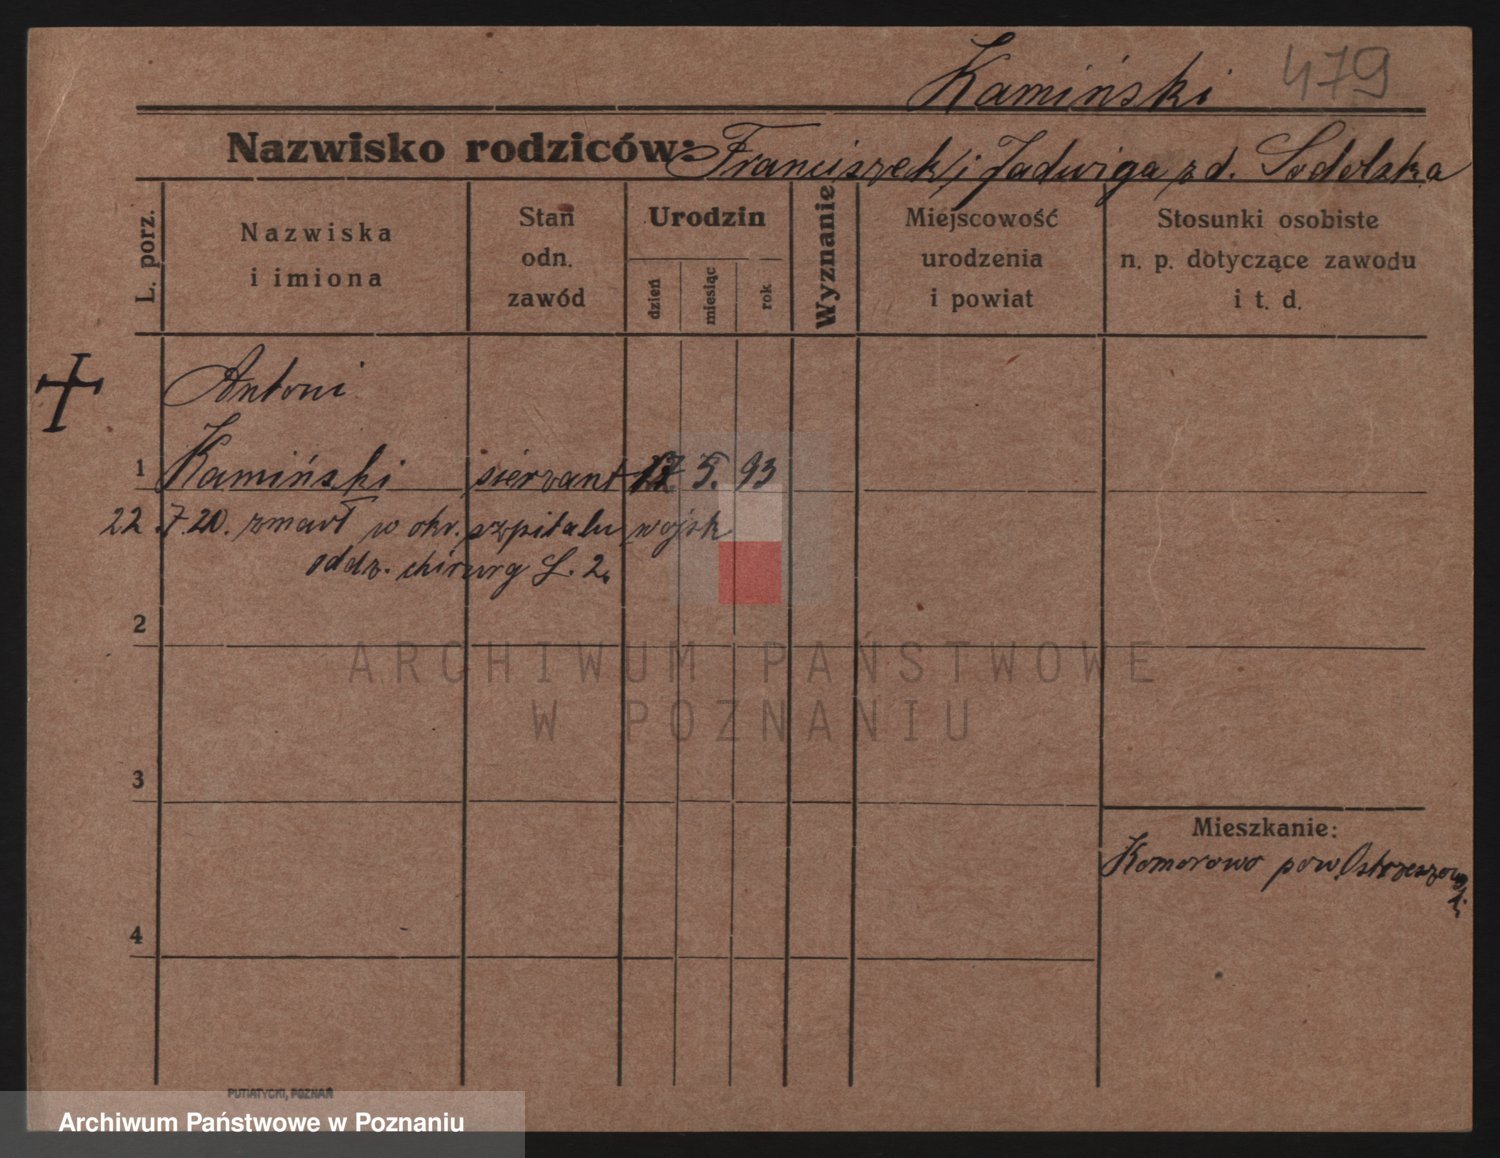 Kamiński 479
Nazwisko rodziców: Franciszek i Jadwiga z d. Sodolska
L. porz.
Nazwiska
i imiona
Stan
odn.
zawód
Urodzin
dzień
miesiąc
rok
Wyznanie
Miejscowość
urodzenia
i powiat
Stosunki osobiste
n. p. dotyczące zawodu
i t. d.
Antoni
1 Kamiński sierżant 5. 93
22.7.20. zmarł w okr. szpitalu wojsk
oddz. chirurg L. 2.
2
ARCHIWUM PAŃSTWOWE
W POZNANIU
3
Mieszkanie:
Komorowo pow. Ostrzeszow
4
PUTIATYCKI, POZNAŃ
Archiwum Państwowe w Poznaniu